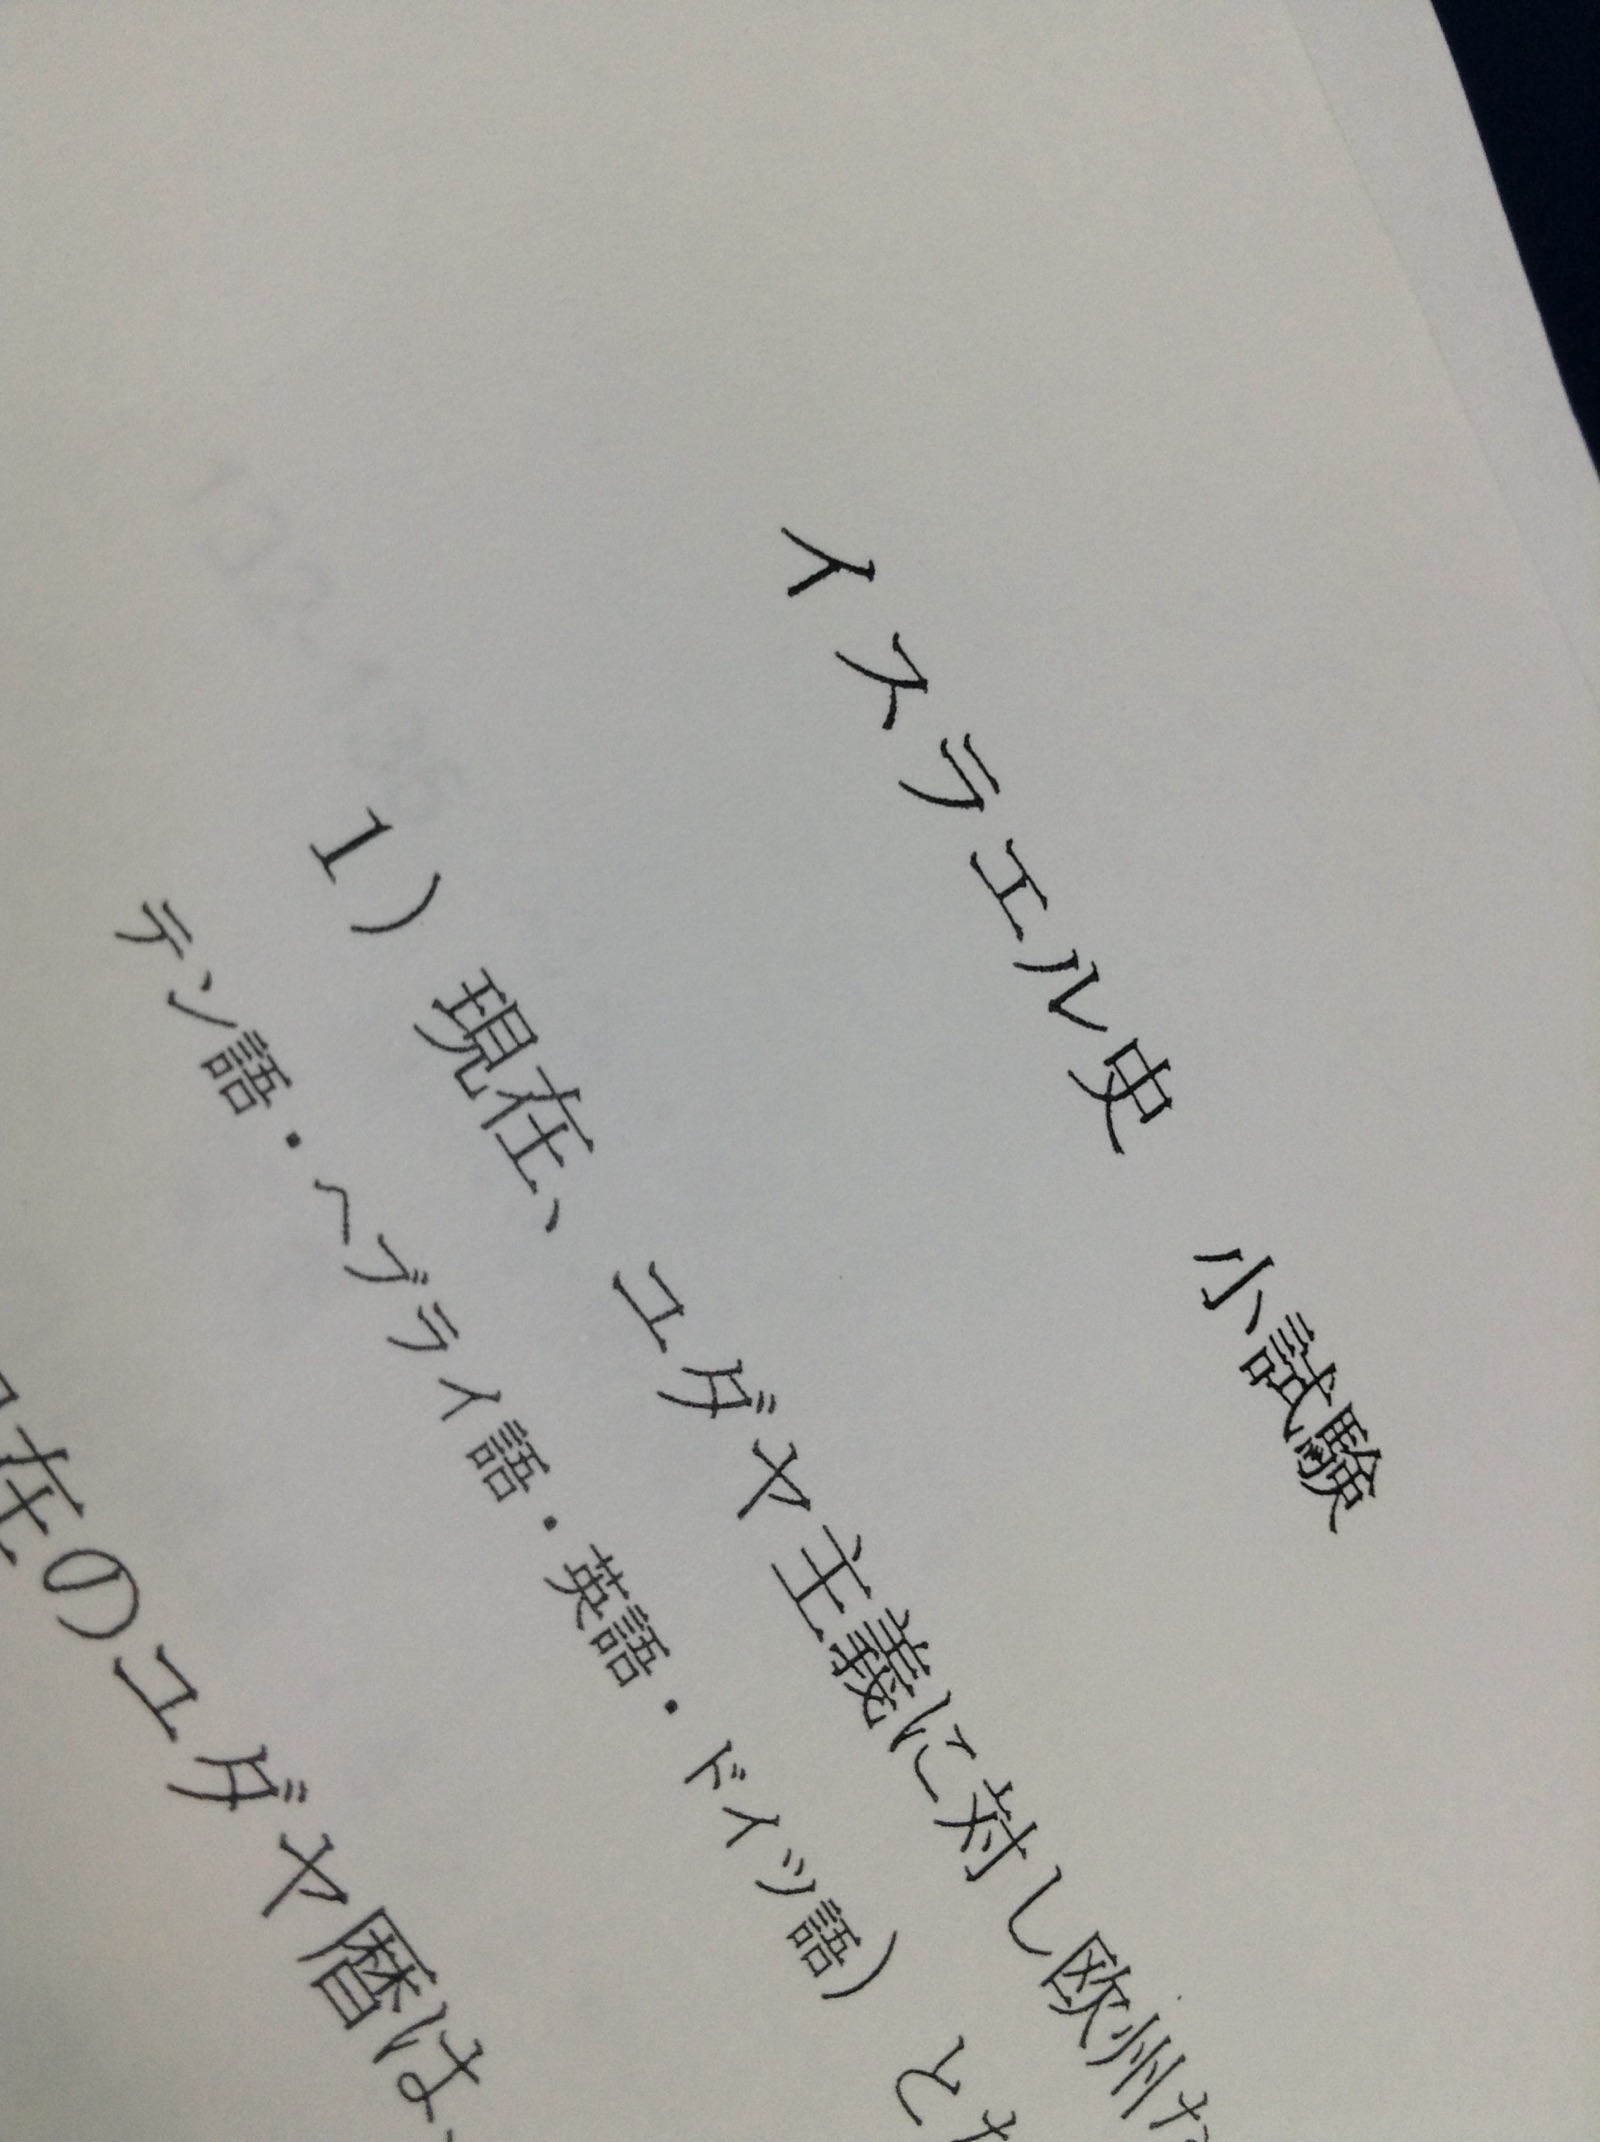 イスラエル史 小試験
1）現在、ユダヤ主義に対し欧州な
テン語・ヘブライ語・英語・ドイツ語）とな
在のユダヤ暦は